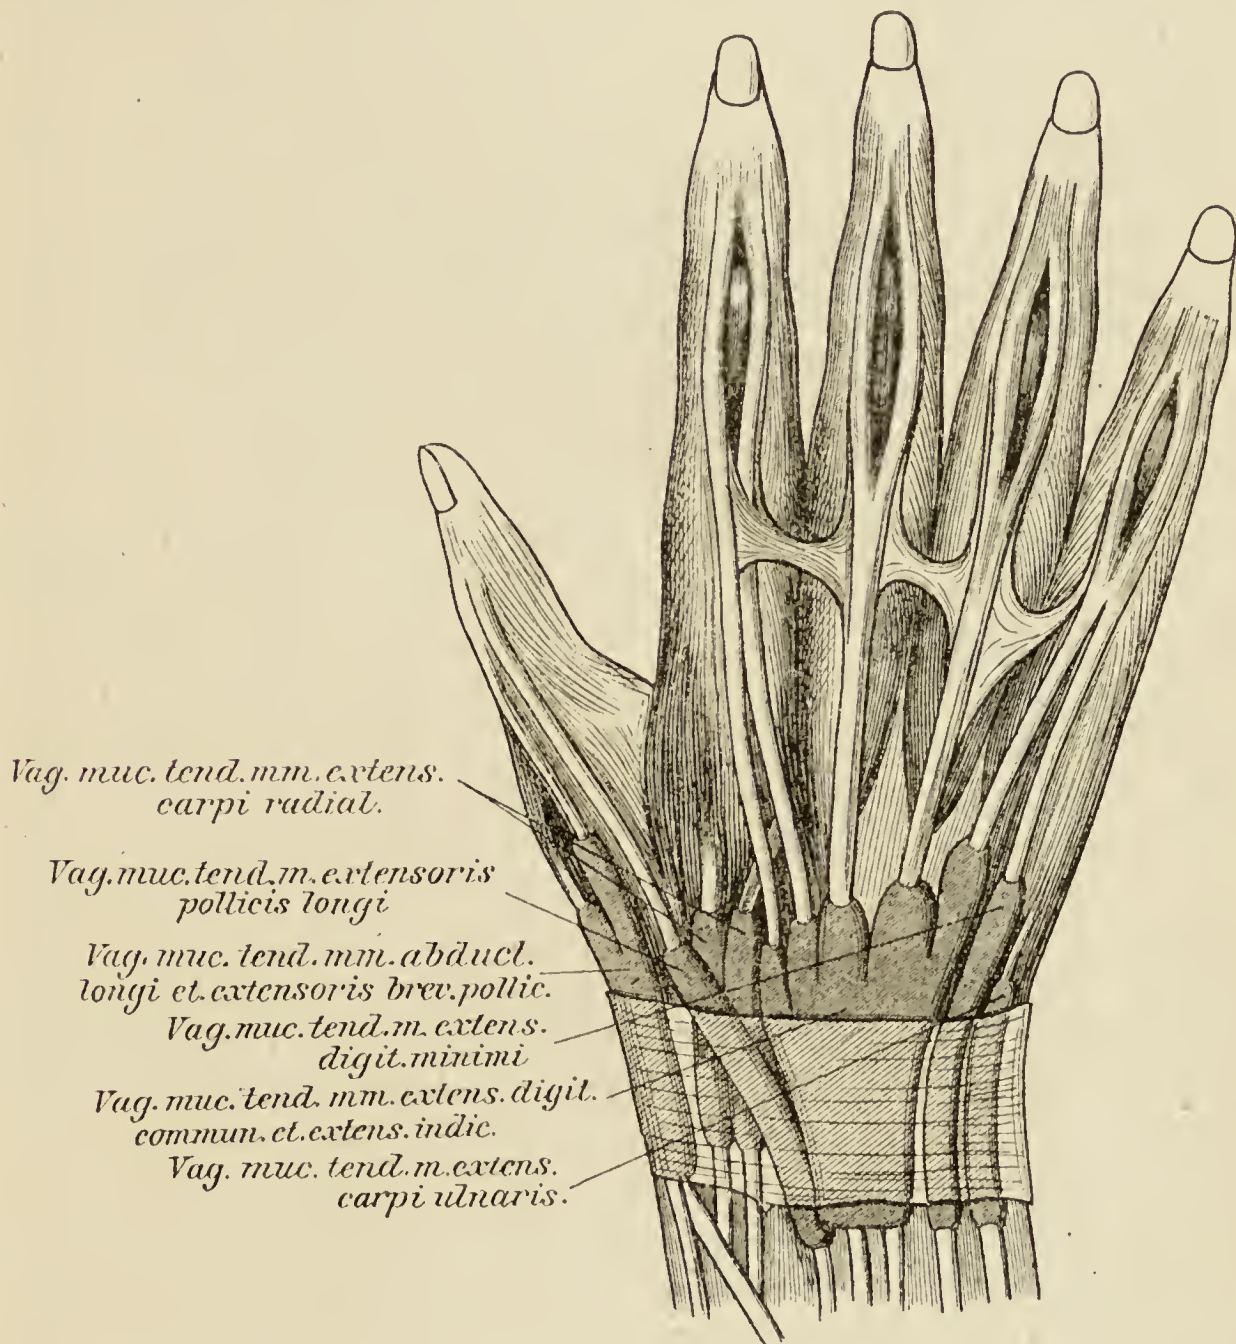 Vag. muc. tend. mm. extens.
carpi radial.
Vag. muc. tend. m. extensoris
pollicis longi
Vag. muc. tend. mm. abduct.
longi et. extensoris brev. pollic.
Vag. muc. tend. m. extens.
digit. minimi
Vag. muc. tend. mm. extens. digit.
commun. et. extens. indic.
Vag. muc. tend. m. extens.
carpi ulnaris.